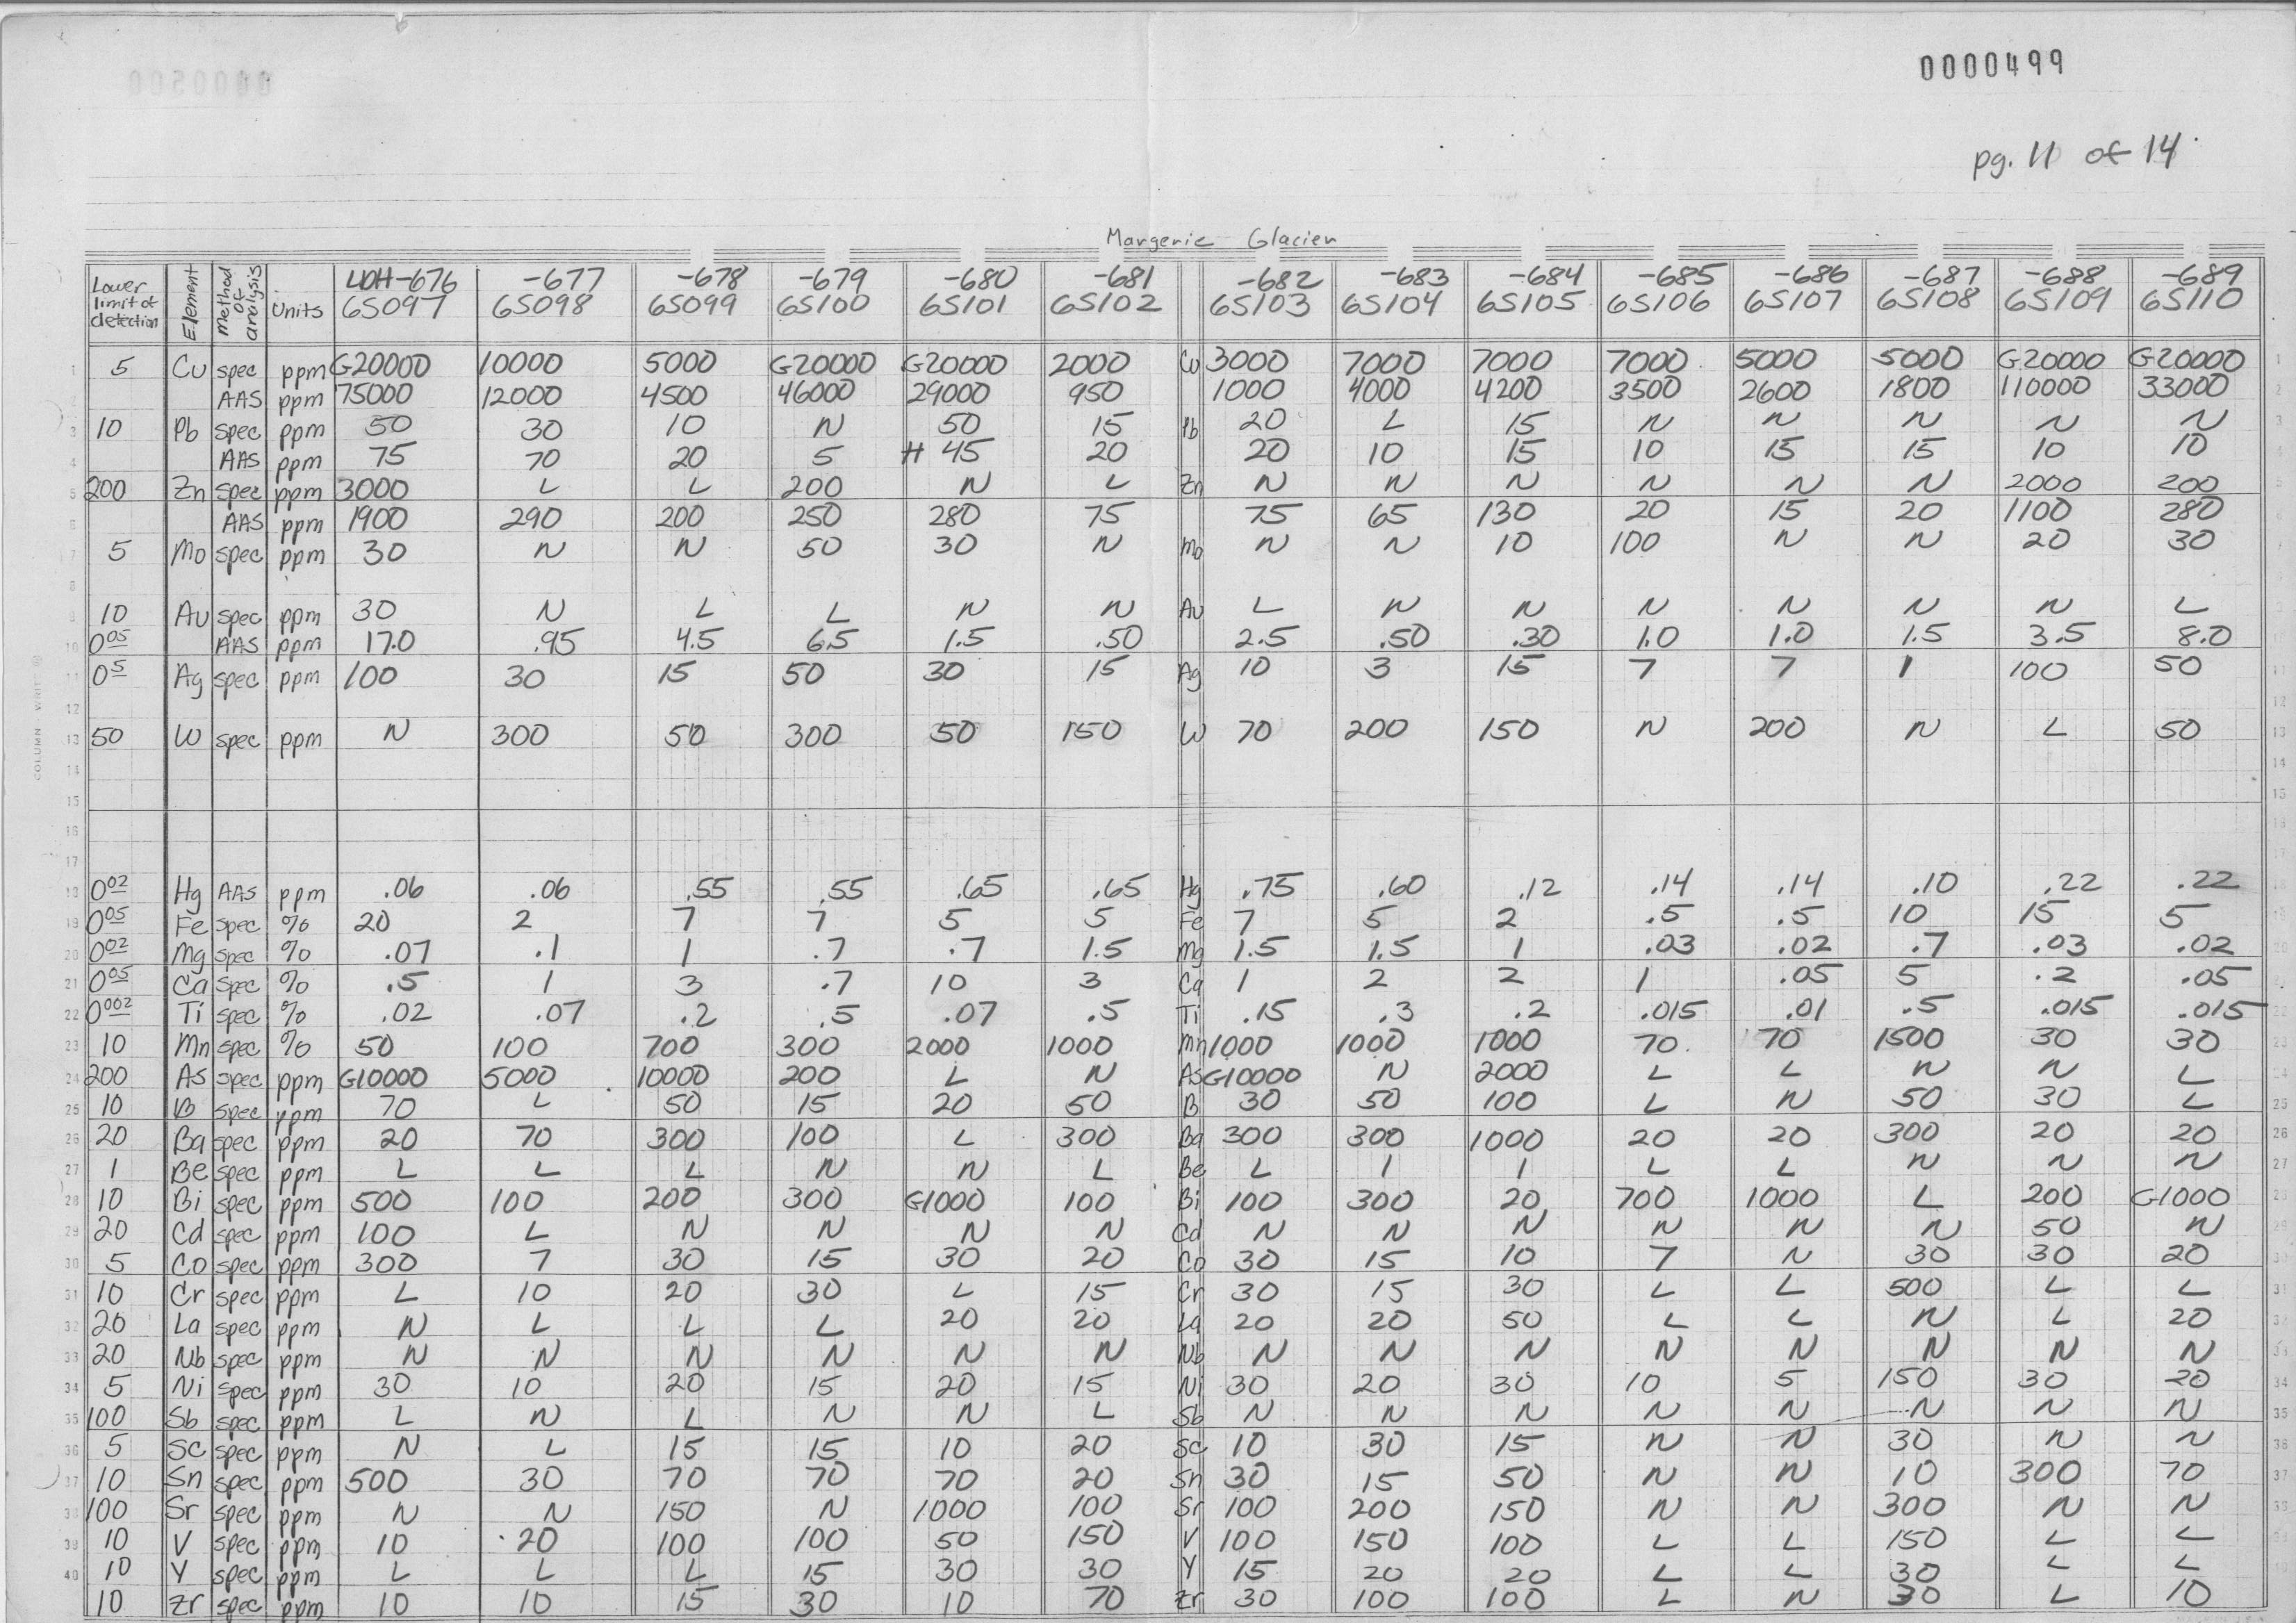 0000499
pg. 11 of 14
Margerie Glacier
Lower limit of detection Element Method of analysis Units UDH-676 -677 -678 -679 -680 -681 -682 -683 -684 -685 -686 -687 -688 -689
6S097 6S098 6S099 6S100 6S101 6S102 6S103 6S104 6S105 6S106 6S107 6S108 6S109 6S110
1 5 Cu spec ppm G20000 10000 5000 G20000 G20000 2000 Cu 3000 7000 7000 7000 5000 5000 G20000 G20000 1
AAS ppm 75000 12000 4500 46000 29000 950 1000 4000 4200 3500 2600 1800 110000 33000
3 10 Pb spec ppm 50 30 10 N 50 15 Pb 20 L 15 N N N N N 3
4 AAS ppm 75 70 20 5 H 45 20 20 10 15 10 15 15 10 10
5 200 Zn spec ppm 3000 L L 200 N L Zn N N N N N N 2000 200
6 AAS ppm 1900 290 200 250 280 75 75 65 130 20 15 20 1100 280
7 5 Mo spec ppm 30 N N 50 30 N Mo N N 10 100 N N 20 30
8
9 10 Au spec ppm 30 N L L N N Au L N N N N N N L
10 0.05 AAS ppm 17.0 .95 4.5 6.5 1.5 .50 2.5 .50 .30 1.0 1.0 1.5 3.5 8.0
11 0.5 Ag spec ppm 100 30 15 50 30 15 Ag 10 3 15 7 7 1 100 50 11
12 12
13 50 W spec ppm N 300 50 300 50 150 W 70 200 150 N 200 N L 50 13
14 14
15 15
16
17
COLUMN WRITE
18 0.02 Hg AAS ppm .06 .06 .55 .55 .65 .65 Hg .75 .60 .12 .14 .14 .10 .22 .22
19 0.05 Fe spec % 20 2 7 7 5 5 Fe 7 5 2 .5 .5 10 15 5
20 0.02 Mg spec % .07 .1 1 .7 .7 1.5 Mg 1.5 1.5 1 .03 .02 .7 .03 .02
21 0.05 Ca spec % .5 1 3 .7 10 3 Ca 1 2 2 1 .05 5 .2 .05
22 0.002 Ti spec % .02 .07 .2 .5 .07 .5 Ti .15 .3 .2 .015 .01 .5 .015 .015
23 10 Mn spec % 50 100 700 300 2000 1000 Mn 1000 1000 1000 70 70 1500 30 30 23
24 200 As spec ppm G10000 5000 10000 200 L N As G10000 N 2000 L L N N L 24
25 10 B spec ppm 70 L 50 15 20 50 B 30 50 100 L N 50 30 L 25
26 20 Ba spec ppm 20 70 300 100 L 300 Ba 300 300 1000 20 20 300 20 20 26
27 1 Be spec ppm L L L N N L Be L 1 1 L L N N N 27
28 10 Bi spec ppm 500 100 200 300 G1000 100 Bi 100 300 20 700 1000 L 200 G1000
29 20 Cd spec ppm 100 L N N N N Cd N N N N N N 50 N
30 5 Co spec ppm 300 7 30 15 30 20 Co 30 15 10 7 N 30 30 20
31 10 Cr spec ppm L 10 20 30 L 15 Cr 30 15 30 L L 500 L L
32 20 La spec ppm N L L L 20 20 La 20 20 50 L L N L 20
33 20 Nb spec ppm N N N N N N Nb N N N N N N N N
34 5 Ni spec ppm 30 10 20 15 20 15 Ni 30 20 30 10 5 150 30 20 34
35 100 Sb spec ppm L N L N N L Sb N N N N N N N N 35
36 5 Sc spec ppm N L 15 15 10 20 Sc 10 30 15 N N 30 N N 36
37 10 Sn spec ppm 500 30 70 70 70 20 Sn 30 15 50 N N 10 300 70 37
38 100 Sr spec ppm N N 150 N 1000 100 Sr 100 200 150 N N 300 N N 38
39 10 V spec ppm 10 20 100 100 50 150 V 100 150 100 L L 150 L L
40 10 Y spec ppm L L L 15 30 30 Y 15 20 20 L L 30 L L
10 Zr spec ppm 10 10 15 30 10 70 Zr 30 100 100 L N 30 L 10